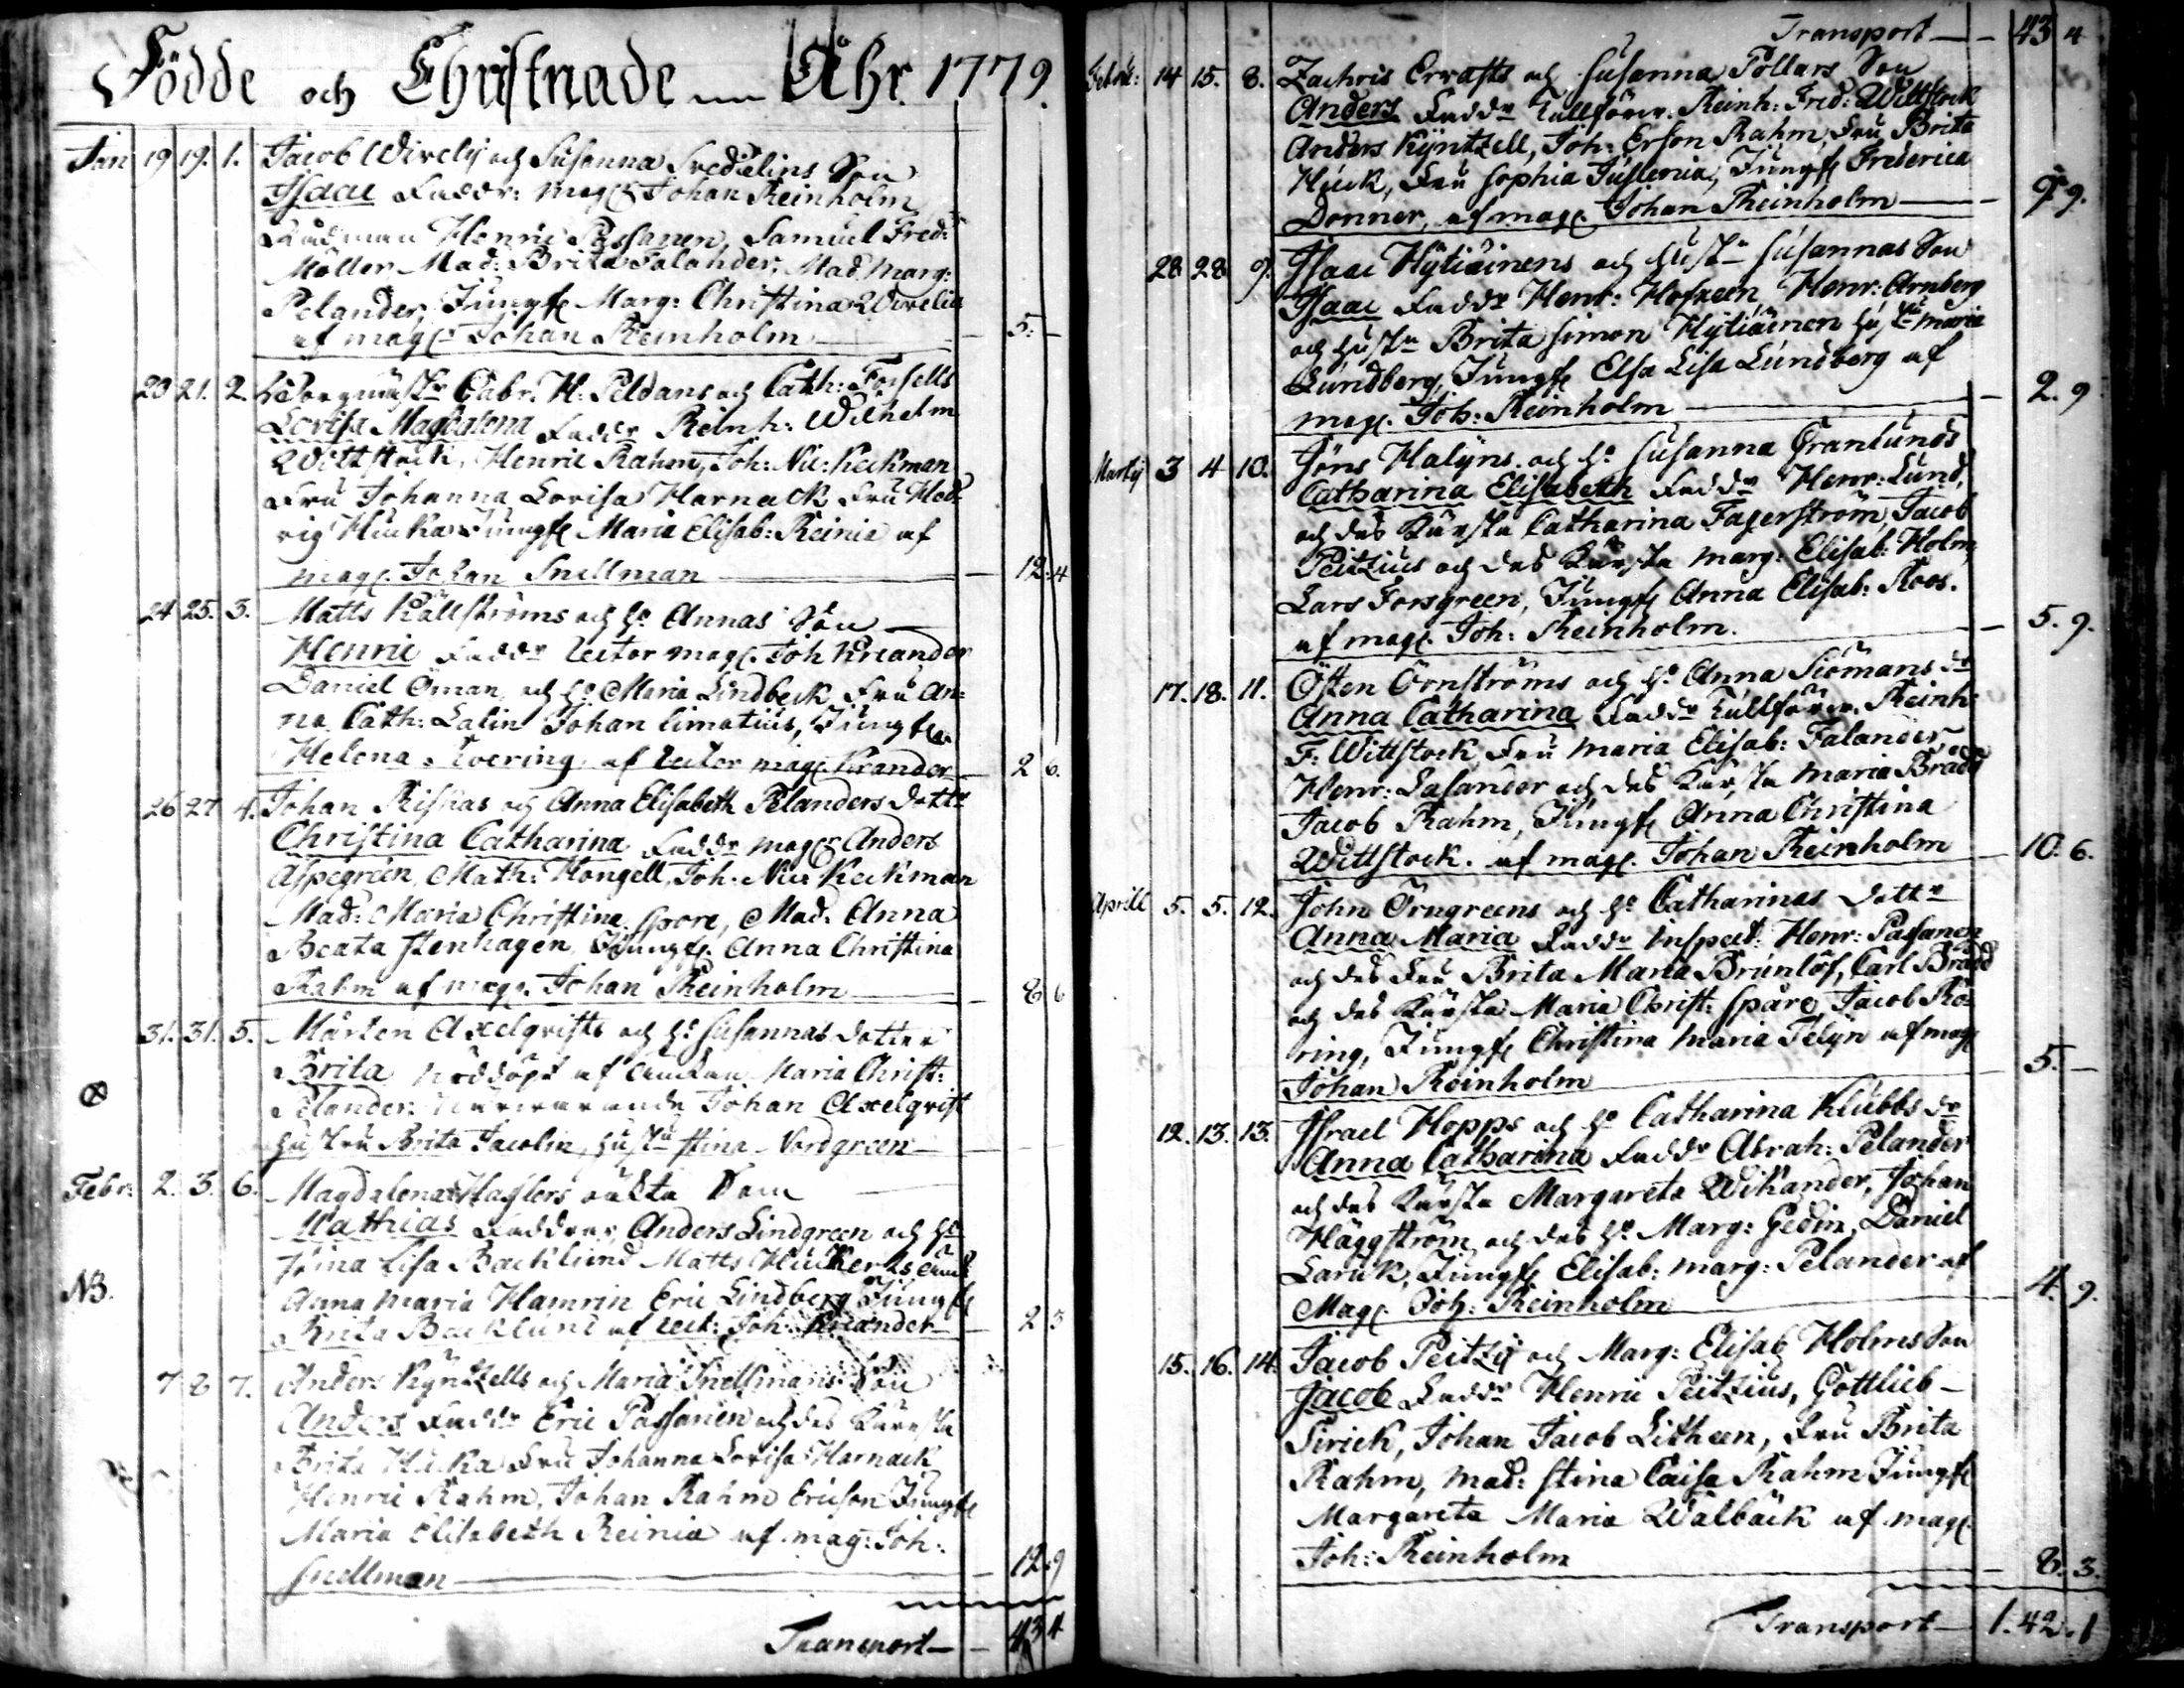 Födde och Christnade Åhr 1779.
Jan 19 19. 1. Jacob Wirelij och Susanna Fredelins Son
Isaac Faddr: mag. Johan Reinholm
Rådman Henric Passanen, Samuel Fred:
Möller Mad: Brita Falander, Mad Marg:
Pelander, Jungf. Marg: Christina Wirelia
af mag. Johan Reinholm — 5. —
20 21. 2. Gabr. H. Peldans och Cath: Forsells
Lovisa Magdalena Faddr Reinh: Wilhelm
Wittstock, Henric Rahm, Joh: Nic: Keckman
Fru Johanna Lovisa Harnack Fru Hed
vig Jungf Maria Elisab: Reinia af
mag. Johan Snellman — 12. 4
24 25. 3. Matts Källströms och h. Annas Son
Henric Faddr Lector mag. Joh Kreander
Daniel Öman, och h. Maria Lindbeck Fru An=
na Cath: Lalin Johan Limatius, Jungfru
Helena af Lector mag. Kreander — 2 6.
26 27 4. Johan Riskas och Anna Elisabeth Pelanders dottr
Christina Catharina Faddr mag. Anders
Aspegreen, Math: Hongell, Joh. Nic Keckman
Mad: Maria Christina Spore, Mad: Anna
Beata Stenhagen, Jungf. Anna Christina
Rahm af mag. Johan Reinholm — 8 6
31. 31. 5. Mårten Axelqvists och h. Susannas dotter
Brita nöddöpt af Maria Christ:
Pelander. Närvarande Johan Axelqvist
hustru Brita Jacolin, hust Stina Nordgreen —
Febr: 2. 3. 6. Magdalena Haglers oäkta Son
Mathias Faddrar Anders Lindgreen och h
Stina Lisa Backlund Matts
NB. Anna Maria Hamrin Eric Lindberg Jungf
Brita Backlund af Lect: Joh: Kreander — 2 3
7 8 7. Anders Kyntzells och Maria Snellmans Son
Anders Faddr Eric Passanen och des Käresta
Brita Hucka Fru Johanna Lovisa Harnack
Henric Rahm, Johan Rahm Ericson Jungf
Maria Elisabeth Reinia af mag: Joh:
Snellman — 12. 9
Transport — 43 4
Transport — 43 4
Febru: 14 15. 8. Zachris Ervasts och Susanna Pollars Son
Anders Faddr Tullförv. Reinh: Fred: Wittstock
Anders Kyntzell, Joh: Erson Rahm, Fru Brita
Huck, Fru Sophia Juslenia, Jungf Frederica
Donner, af mag. Johan Reinholm — 9 9.
28 28 9. Isaac Hytiäinens och Hust Susannas Son
Isaac Faddr Henr: Hofreen, Henr: Arnberg
och hust Brita Simon Hytiäinen hust Maria
Lundberg, Jungf Elsa Lisa Lundberg af
mag. Joh: Reinholm — 2. 9
Martij 3 4 10. Jöns Halyns och h. Susanna Granlunds
Catharina Elisabeth Faddr Henr: Lund,
och des Kärsta Catharina Fagerström, Jacob
Peitzius och des Kärsta Marg: Elisab: Holm,
Lars Forsgreen, Jungf Anna Elisab: Roos.
af mag. Joh: Reinholm. — 5. 9.
17. 18. 11. Östen Örnströms och h. Anna Siömans dr
Anna Catharina Faddr Tullförv. Reinh:
F: Wittstock Fru Maria Elisab: Falander
Henr: Lasander och des Kärsta Maria Brådd
Jacob Rahm, Jungf Anna Christina
Wittstock. af mag. Johan Reinholm — 10. 6.
Aprill 5. 5. 12. John Örngreens och h. Catharinas dottr
Anna Maria Faddr Inspect: Henr: Passanen
och des Fru Brita Maria Brunlöf, Carl Brådd
och des Kärsta Maria Christ: Spåre, Jacob Rö=
ring, Jungf Christina Maria Telyn af mag
Johan Reinholm — 5. —
12. 13. 13. Israel Hopps och h. Catharina Klubbs dr
Anna Catharina Faddr Abrah: Pelander
och des Kärsta Margareta Wikander, Johan
Häggström och des h. Marg: Gedin, Daniel
Laruk, Jungf Elisab: Marg: Pelander af
Mag. Joh: Reinholm — 4. 9.
15. 16. 14. Jacob Peitzij och Marg: Elisab Holms Son
Jacob Faddr Henric Peitzius, Gottlieb
Sirick, Johan Jacob Litheen, Fru Brita
Rahm, Mad: Stina Caisa Rahm Jungf
Margareta Maria Walbäck af mag.
Joh: Reinholm — 8. 3.
Transport — 1. 42. 1